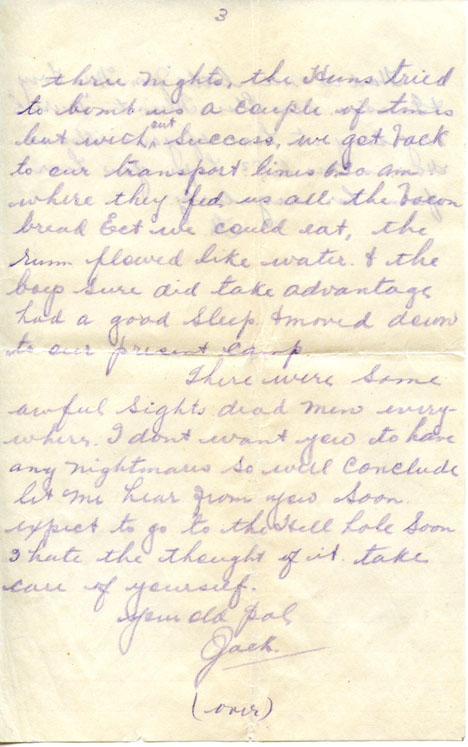 3
three nights, the Huns tried
to bomb us a couple of times
but with out success, we got back
to our transport lines 6 30 am
where they fed us all the bacon
bread Ect we could eat, the
rum flowed like water. & the
boys sure did take advantage
had a good sleep & moved down
to our present camp.
There were some
awful sights dead men every-
where. I dont want you to have
any nightmares so will conclude
let me hear from you soon
expect to go to the Hell hole soon
I hate the thought of it. take
care of yourself.
Your old pal
Jack.
(over)